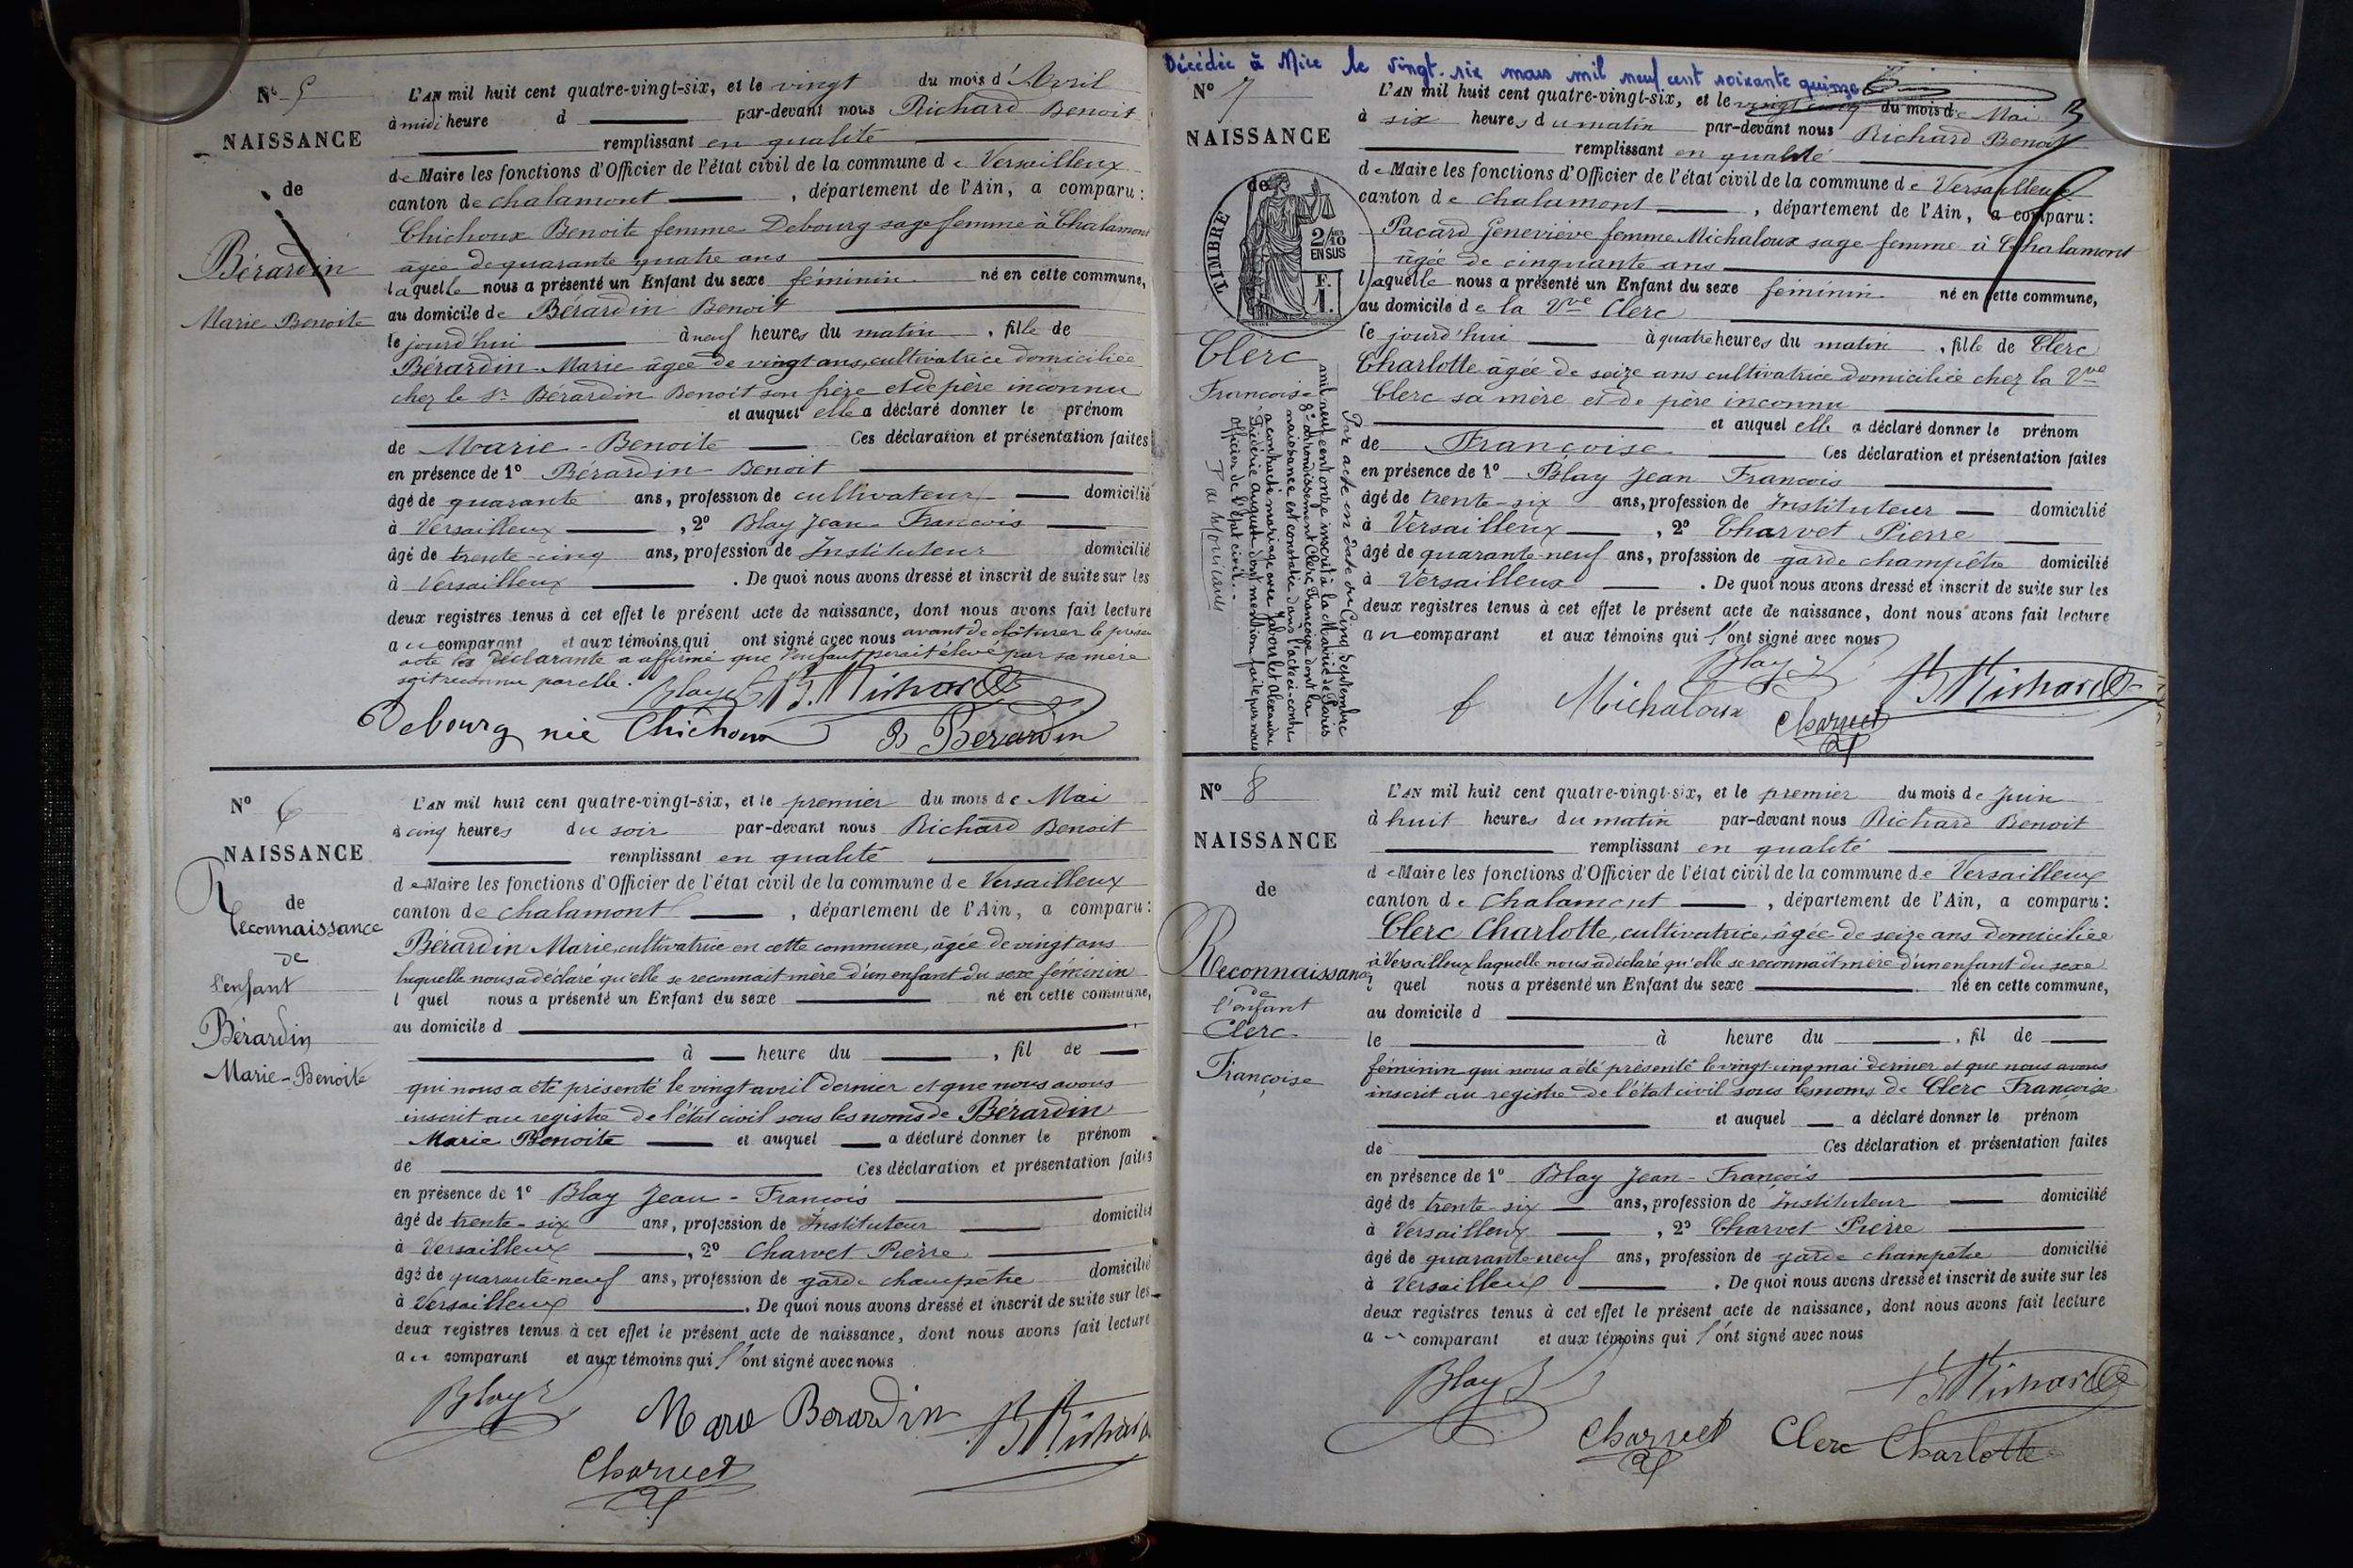 N° 5
NAISSANCE
de
Bérardin
Marie Benoite
L'AN mil huit cent quatre-vingt-six, et le vingt du mois d'Avril
à midi heure d par-devant nous Richard Benoit
remplissant en qualité
de Maire les fonctions d'Officier de l'état civil de la commune de Versailleux
canton de chalamont, département de l'Ain, a comparu:
Chichoux Benoite femme Debourg sage femme à Chalamont
âgée de quarante quatre ans
laquelle nous a présenté un Enfant du sexe féminin né en cette commune,
au domicile de Bérardin Benoit
le jourd'hui à neuf heures du matin, fille de
Bérardin Marie âgée de vingt ans, cultivatrice domiciliée
chez le Sr Bérardin Benoit son frère et de père inconnu
et auquel elle a déclaré donner le prénom
de Marie-Benoite Ces déclaration et présentation faites
en présence de 1° Bérardin Benoit
âgé de quarante ans, profession de cultivateur domicilié
à Versailleux, 2° Blay Jean François
âgé de trente-cinq ans, profession de Instituteur domicilié
à Versailleux. De quoi nous avons dressé et inscrit de suite sur les
deux registres tenus à cet effet le présent acte de naissance, dont nous avons fait lecture
au comparant et aux témoins qui ont signé avec nous avant de clôturer le présent
acte la déclarante a affirmé que l'enfant serait élevé par sa mère
soit reconnu par elle.
Blay B. Richard
Debourg née Chichoux B Berardin
N° 6
NAISSANCE
de
Reconnaissance
de
l'enfant
Bérardin
Marie-Benoite
L'AN mil huit cent quatre-vingt-six, et le premier du mois de Mai
à cinq heures du soir par-devant nous Richard Benoit
remplissant en qualité
de Maire les fonctions d'Officier de l'état civil de la commune de Versailleux
canton de chalamont, département de l'Ain, a comparu:
Bérardin Marie, cultivatrice en cette commune, âgée de vingt ans
laquelle nous a déclaré qu'elle se reconnait mère d'un enfant du sexe féminin
l quel nous a présenté un Enfant du sexe né en cette commune,
au domicile d
à heure du, fil de
qui nous a été présenté le vingt avril dernier et que nous avons
inscrit au registre de l'état civil sous les noms de Bérardin
Marie Benoite et auquel a déclaré donner le prénom
de Ces déclaration et présentation faites
en présence de 1° Blay Jean-François
âgé de trente-six ans, profession de Instituteur domicilié
à Versailleux, 2° Charvet Pierre
âgé de quarante-neuf ans, profession de garde champêtre domicilié
à Versailleux. De quoi nous avons dressé et inscrit de suite sur les
deux registres tenus à cet effet le présent acte de naissance, dont nous avons fait lecture
au comparant et aux témoins qui l'ont signé avec nous
Blay Marie Berardin B Richard
Charvet
Décédée à Nice le vingt-six mars mil neuf cent soixante quinze
N° 7
NAISSANCE
de
TIMBRE
2/10 EN SUS
F. 1.
Clerc
Françoise
Par acte en date du Cinq Septembre
mil neuf cent onze inscrit à la Mairie de Paris
8e arrondissement Clerc Françoise dont la
naissance est constatée dans l'acte ci-contre
a contracté mariage avec Jaboulet Alexandre
Frédéric Auguste dont mention faite par nous
Officier de l'Etat civil.
L'AN mil huit cent quatre-vingt-six, et le vingt cinq du mois de Mai
à six heures du matin par-devant nous Richard Benoit
remplissant en qualité
de Maire les fonctions d'Officier de l'état civil de la commune de Versailleux
canton de chalamont, département de l'Ain, a comparu:
Pacard Geneviève femme Michaloux sage-femme à Chalamont
âgée de cinquante ans
laquelle nous a présenté un Enfant du sexe féminin né en cette commune,
au domicile de la Vve Clerc
le jourd'hui à quatre heures du matin, fille de Clerc
Charlotte âgée de seize ans cultivatrice domiciliée chez la Vve
Clerc sa mère et de père inconnu
et auquel elle a déclaré donner le prénom
de Françoise Ces déclaration et présentation faites
en présence de 1° Blay Jean François
âgé de trente-six ans, profession de Instituteur domicilié
à Versailleux, 2° Charvet Pierre
âgé de quarante-neuf ans, profession de garde champêtre domicilié
à Versailleux. De quoi nous avons dressé et inscrit de suite sur les
deux registres tenus à cet effet le présent acte de naissance, dont nous avons fait lecture
au comparant et aux témoins qui l'ont signé avec nous
Blay
f Michaloux Charvet B Richard
N° 8
NAISSANCE
de
Reconnaissance
de
l'enfant
Clerc
Françoise
L'AN mil huit cent quatre-vingt-six, et le premier du mois de Juin
à huit heures du matin par-devant nous Richard Benoit
remplissant en qualité
de Maire les fonctions d'Officier de l'état civil de la commune de Versailleux
canton de Chalamont, département de l'Ain, a comparu:
Clerc Charlotte, cultivatrice, âgée de seize ans domiciliée
à Versailleux laquelle nous a déclaré qu'elle se reconnaît mère d'un enfant du sexe
l quel nous a présenté un Enfant du sexe né en cette commune,
au domicile d
le à heure du, fil de
féminin qui nous a été présenté le vingt-cinq mai dernier et que nous avons
inscrit au registre de l'état civil sous les noms de Clerc Françoise
et auquel a déclaré donner le prénom
de Ces déclaration et présentation faites
en présence de 1° Blay Jean-François
âgé de trente-six ans, profession de Instituteur domicilié
à Versailleux, 2° Charvet Pierre
âgé de quarante-neuf ans, profession de garde champêtre domicilié
à Versailleux. De quoi nous avons dressé et inscrit de suite sur les
deux registres tenus à cet effet le présent acte de naissance, dont nous avons fait lecture
au comparant et aux témoins qui l'ont signé avec nous
Blay B Richard
Charvet Clerc Charlotte